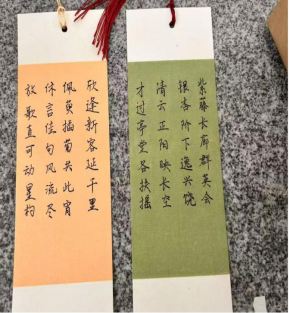 紫藤长廊群英会
银杏阶下逸兴饶
清云正阳映长空
才过亭堂各扶摇
欣逢新客延千里
佩萸插菊共此宵
休言佳句风流尽
放歌直可动星杓